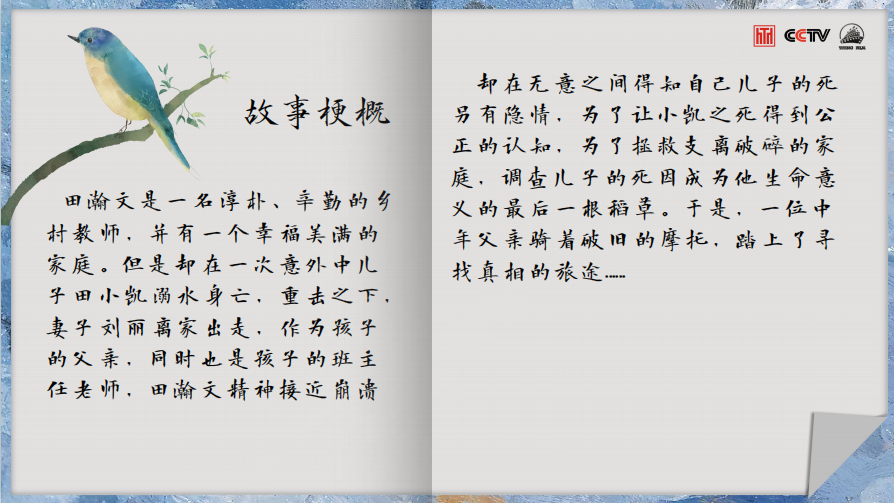 故事梗概
田瀚文是一名淳朴、辛勤的乡
村教师，并有一个幸福美满的
家庭。但是却在一次意外中儿
子田小凯溺水身亡，重击之下，
妻子刘丽离家出走，作为孩子
的父亲，同时也是孩子的班主
任老师，田瀚文精神接近崩溃
CCTV
却在无意之间得知自己儿子的死
另有隐情，为了让小凯之死得到公
正的认知，为了拯救支离破碎的家
庭，调查儿子的死因成为他生命意
义的最后一根稻草。于是，一位中
年父亲骑着破旧的摩托，踏上了寻
找真相的旅途……